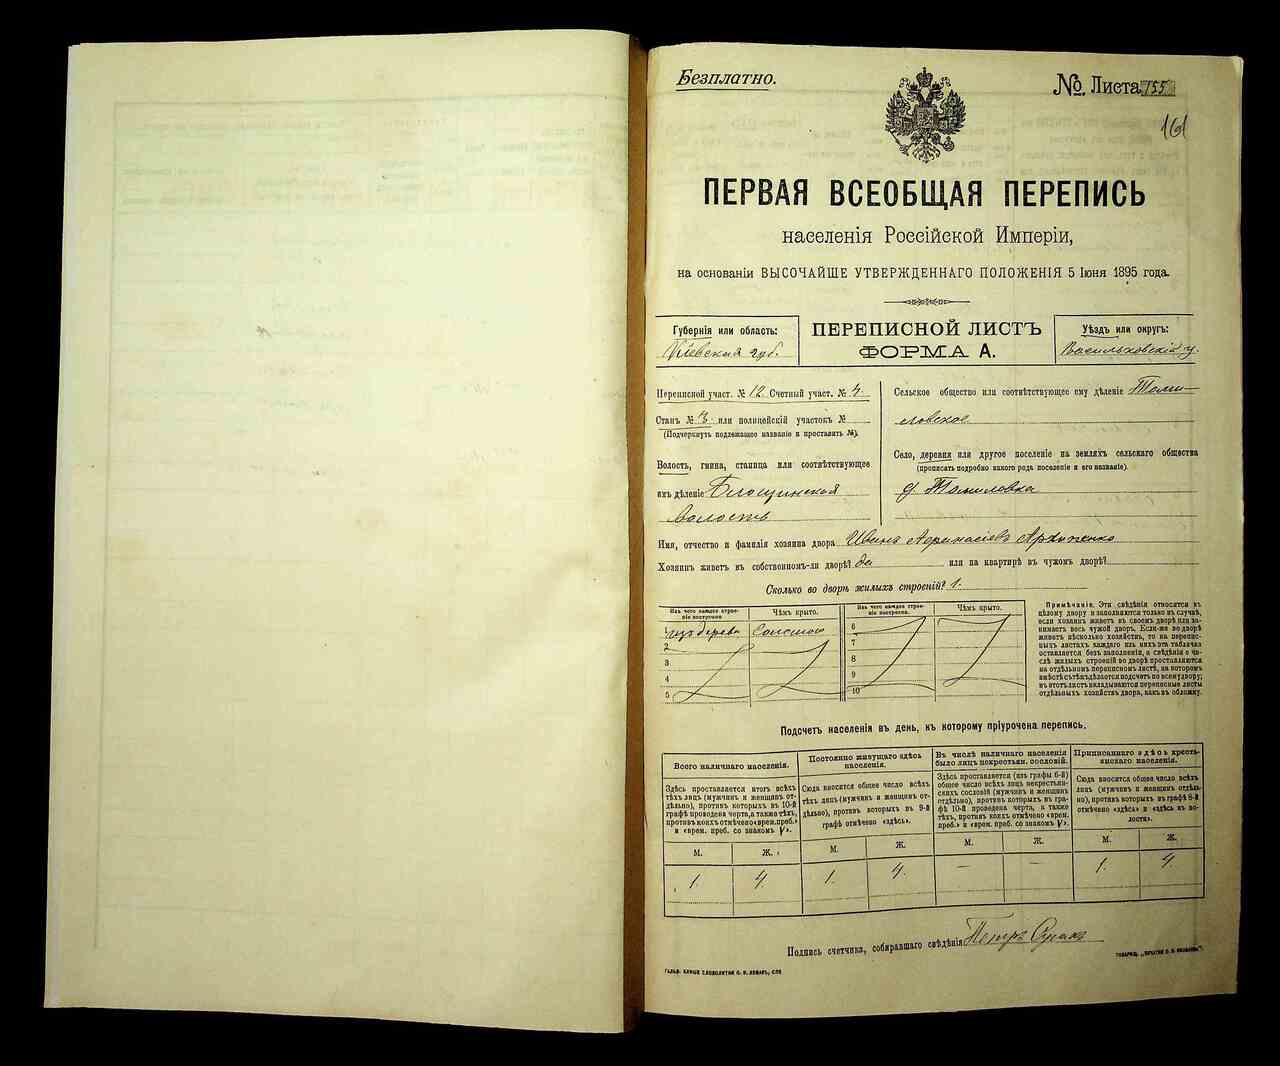 Безплатно.
№ Листа 155
161
ПЕРВАЯ ВСЕОБЩАЯ ПЕРЕПИСЬ
населенія Россійской Имперіи,
на основаніи ВЫСОЧАЙШЕ УТВЕРЖДЕННАГО ПОЛОЖЕНІЯ 5 Іюня 1895 года.
Губернія или область:
Кіевская губ.
ПЕРЕПИСНОЙ ЛИСТЪ
ФОРМА А.
Уѣздъ или округъ:
Васильковскій у.
Переписной участ. № 12 Счетный участ. № 4.
Станъ № 3. или полицейскій участокъ №
(Подчеркнуть подлежащее названіе и проставить №).
Волость, гмина, станица или соотвѣтствующее
имъ дѣленіе Блощинская
волость
Сельское общество или соотвѣтствующее ему дѣленіе Томи-
ловское
Село, деревня или другое поселеніе на земляхъ сельскаго общества
(прописать подробно какого рода поселеніе и его названіе).
д. Томиловка
Имя, отчество и фамилія хозяина двора Ивана Афанасіевъ Архипенко
Хозяинъ живетъ въ собственномъ-ли дворѣ? да или на квартирѣ въ чужомъ дворѣ?
Сколько во дворѣ жилыхъ строеній? 1.
Изъ чего каждое строе-
ніе построено.
Чѣмъ крыто.
Изъ чего каждое строе-
ніе построено.
Чѣмъ крыто.
1 изъ дерева Соломою
2
3
4
5
6
7
8
9
10
Примѣчаніе. Эти свѣдѣнія относятся къ
цѣлому двору и заполняются только въ случаѣ,
если хозяинъ живетъ въ своемъ дворѣ или за-
нимаетъ весь чужой дворъ. Если-же во дворѣ
живетъ нѣсколько хозяйствъ, то на перепис-
ныхъ листахъ каждаго изъ нихъ эта табличка
оставляется безъ заполненія, а свѣдѣнія о чи-
слѣ жилыхъ строеній во дворѣ проставляются
на отдѣльномъ переписномъ листѣ, на которомъ
вмѣстѣ съ тѣмъ дѣлается подсчетъ по всему двору;
въ этотъ листъ вкладываются переписные листы
отдѣльныхъ хозяйствъ двора, какъ въ обложку.
Подсчетъ населенія въ день, къ которому пріурочена перепись.
Всего наличнаго населенія.
Здѣсь проставляется итогъ всѣхъ
тѣхъ лицъ (мужчинъ и женщинъ от-
дѣльно), противъ которыхъ въ 10-й
графѣ проведена черта, а также тѣхъ,
противъ коихъ отмѣчено «врем. преб.»
и «врем. преб. со знакомъ V».
Постоянно живущаго здѣсь
населенія.
Сюда вносится общее число всѣхъ
тѣхъ лицъ (мужчинъ и женщинъ от-
дѣльно), противъ которыхъ въ 9-й
графѣ отмѣчено «здѣсь».
Въ числѣ наличнаго населенія
было лицъ некрестьян. сословій.
Здѣсь проставляется (изъ графы 6-й)
общее число всѣхъ лицъ некрестьян-
скихъ сословій (мужчинъ и женщинъ
отдѣльно), противъ которыхъ въ гра-
фѣ 10-й проведена черта, а также
тѣхъ, противъ коихъ отмѣчено «врем.
преб.» и «врем. преб. со знакомъ V».
Приписаннаго здѣсь кресть-
янскаго населенія.
Сюда вносится общее число всѣхъ
лицъ (мужчинъ и женщинъ отдѣль-
но), противъ которыхъ въ графѣ 8-й
отмѣчено «здѣсь» и «здѣсь въ во-
лости».
М. Ж. М. Ж. М. Ж. М. Ж.
1. 4. 1. 4. — — 1. 4.
Подпись счетчика, собиравшаго свѣдѣнія Петръ